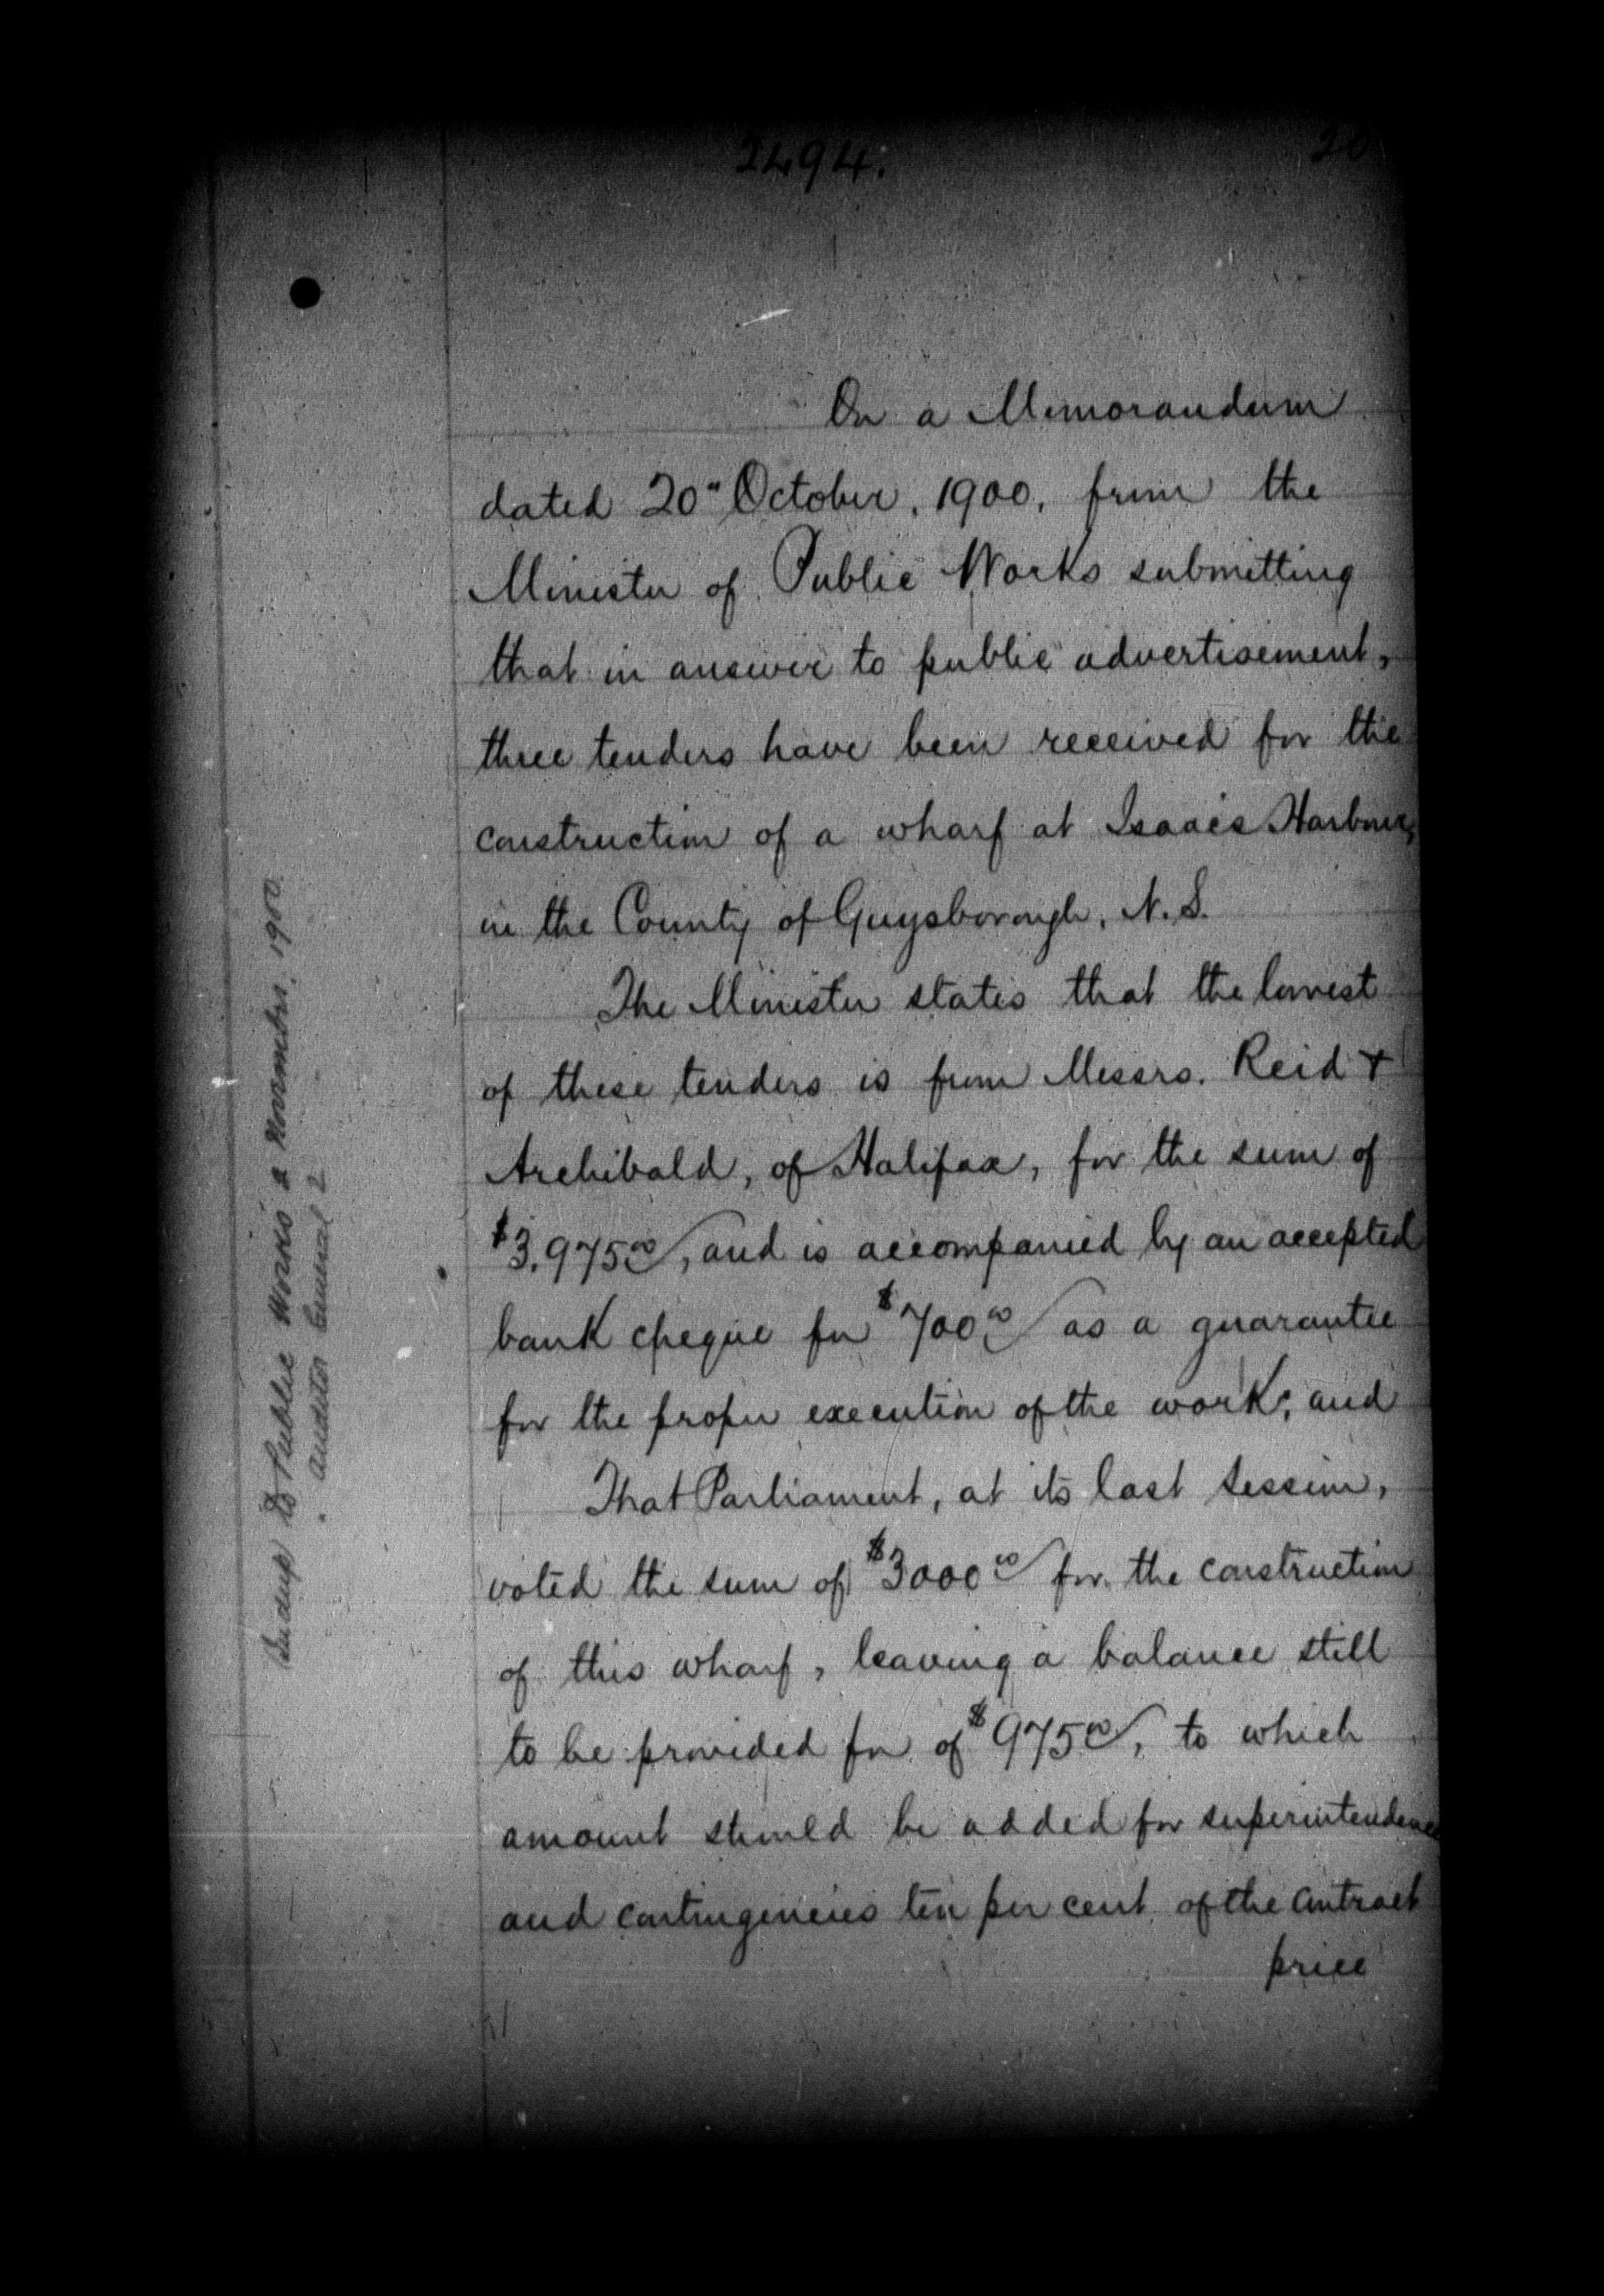 2494.
20
On a Memorandum
dated 20th October, 1900, from the
Minister of Public Works submitting
that in answer to public advertisement,
three tenders have been received for the
construction of a wharf at Isaacs Harbour,
in the County of Guysborough, N.S.
The Minister states that the lowest
of these tenders is from Messrs. Reid &
Archibald, of Halifax, for the sum of
$3,975.00, and is accompanied by an accepted
bank cheque for $700.00 as a guarantee
for the proper execution of the work; and
That Parliament, at its last session,
voted the sum of $3000.00 for the construction
of this wharf, leaving a balance still
to be provided for of $975.00, to which
amount should be added for superintendence
and contingencies ten per cent of the contract
price
to Public Works 2 November. 1900.
" Auditor General 2